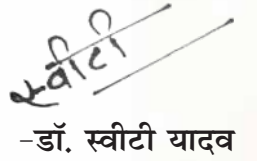 स्वीटी
-डॉ. स्वीटी यादव